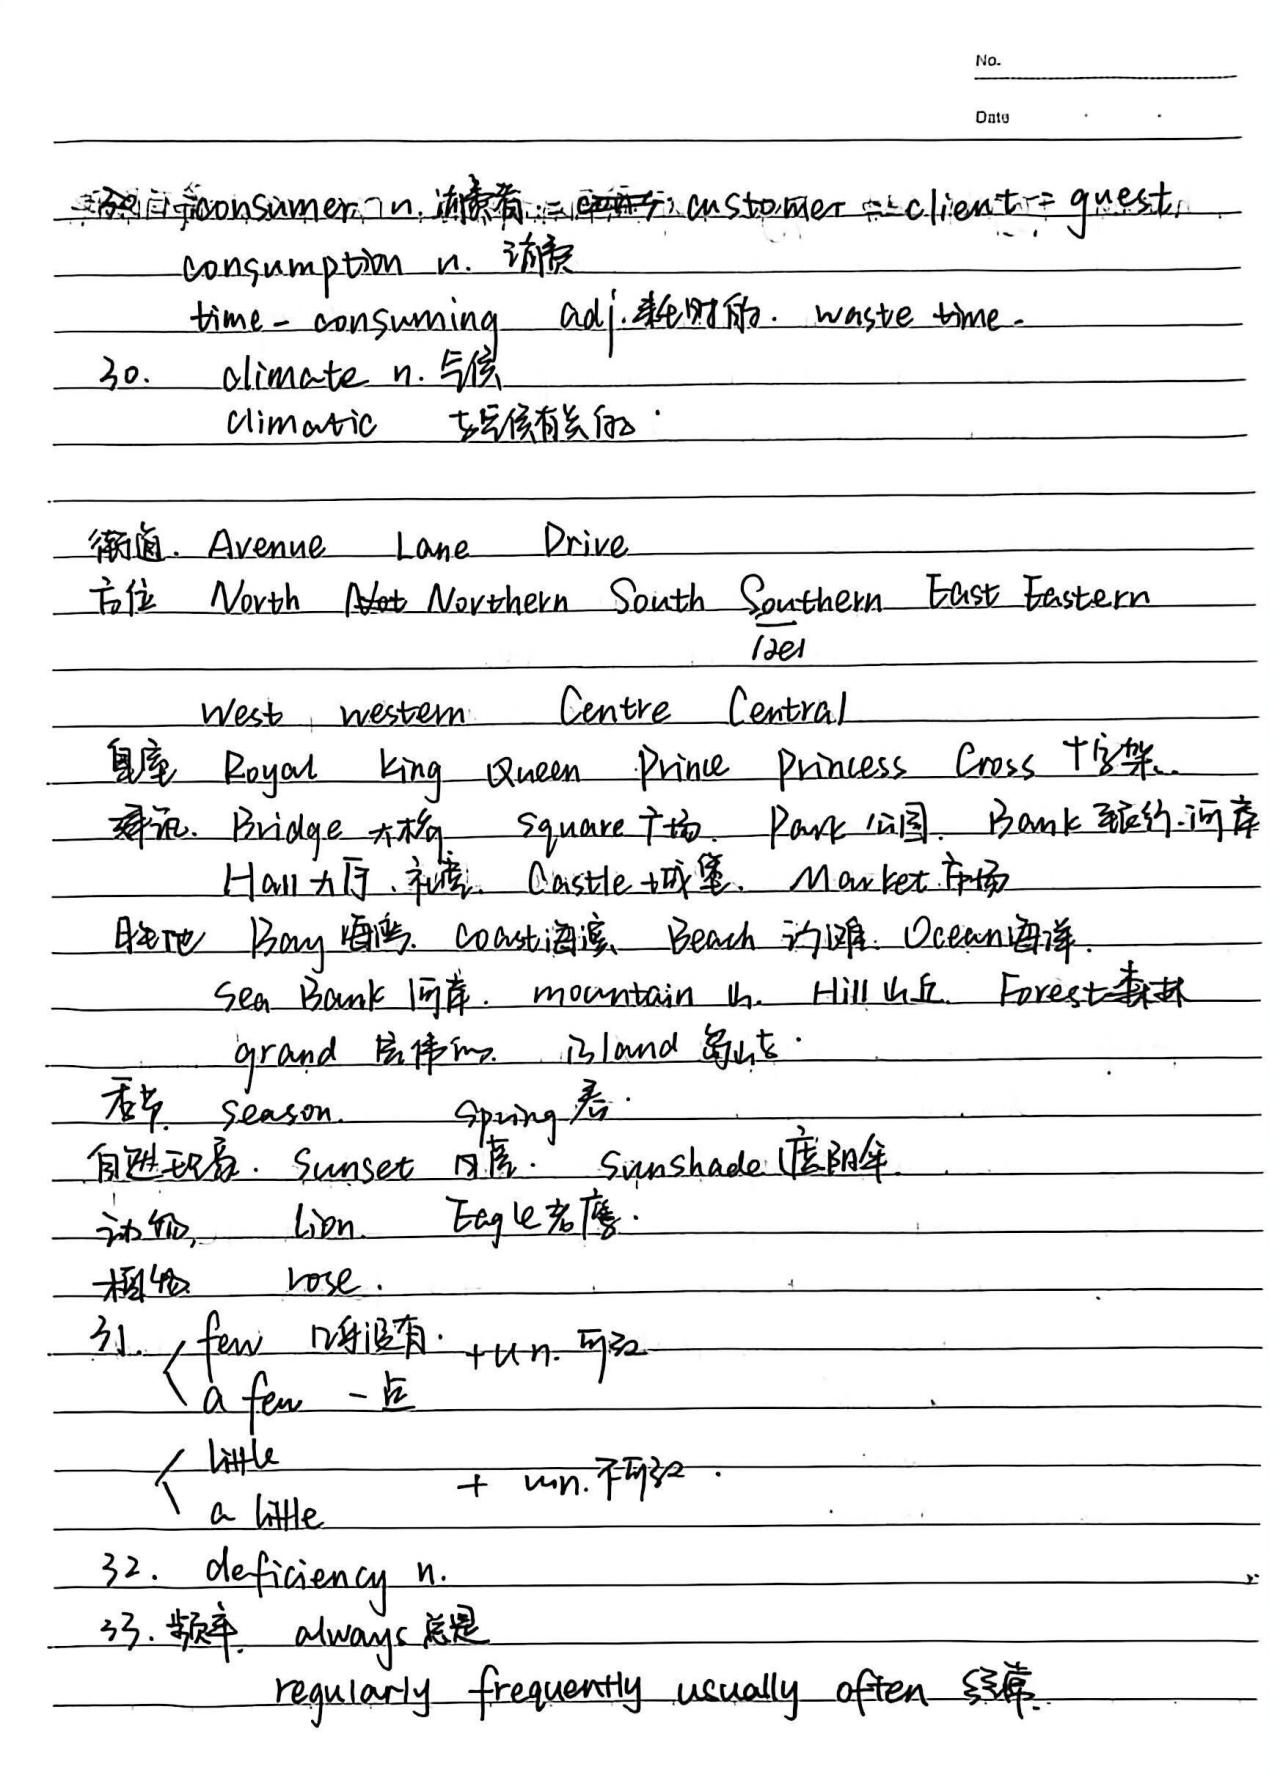 No.
Date
consumer n. 消费者 = customer = client = guest
consumption n. 消费
time-consuming adj. 耗时的. waste time.
30. climate n. 气候
climatic 与气候有关的.
街道. Avenue Lane Drive
方位 North Northern South Southern East Eastern
West western Centre Central
皇室 Royal king Queen Prince Princess Cross 十字架.
建筑. Bridge 大桥 square 广场. Park 公园. Bank 银行.河岸
Hall 大厅.礼堂. Castle 城堡. Market 市场
陆地 Bay 海湾. coast 海滨. Beach 沙滩. Ocean 海洋.
sea Bank 河岸. mountain 山. Hill 山丘. Forest 森林
grand 宏伟的. island 岛屿.
季节. season. spring 春.
自然现象. sunset 日落. sunshade 遮阳伞.
动物. lion. Eagle 老鹰.
植物 rose.
31. few 几乎没有. + un. 可数
a few 一点
little
a little + un. 不可数.
32. deficiency n.
33. 频率. always 总是
regularly frequently usually often 经常.